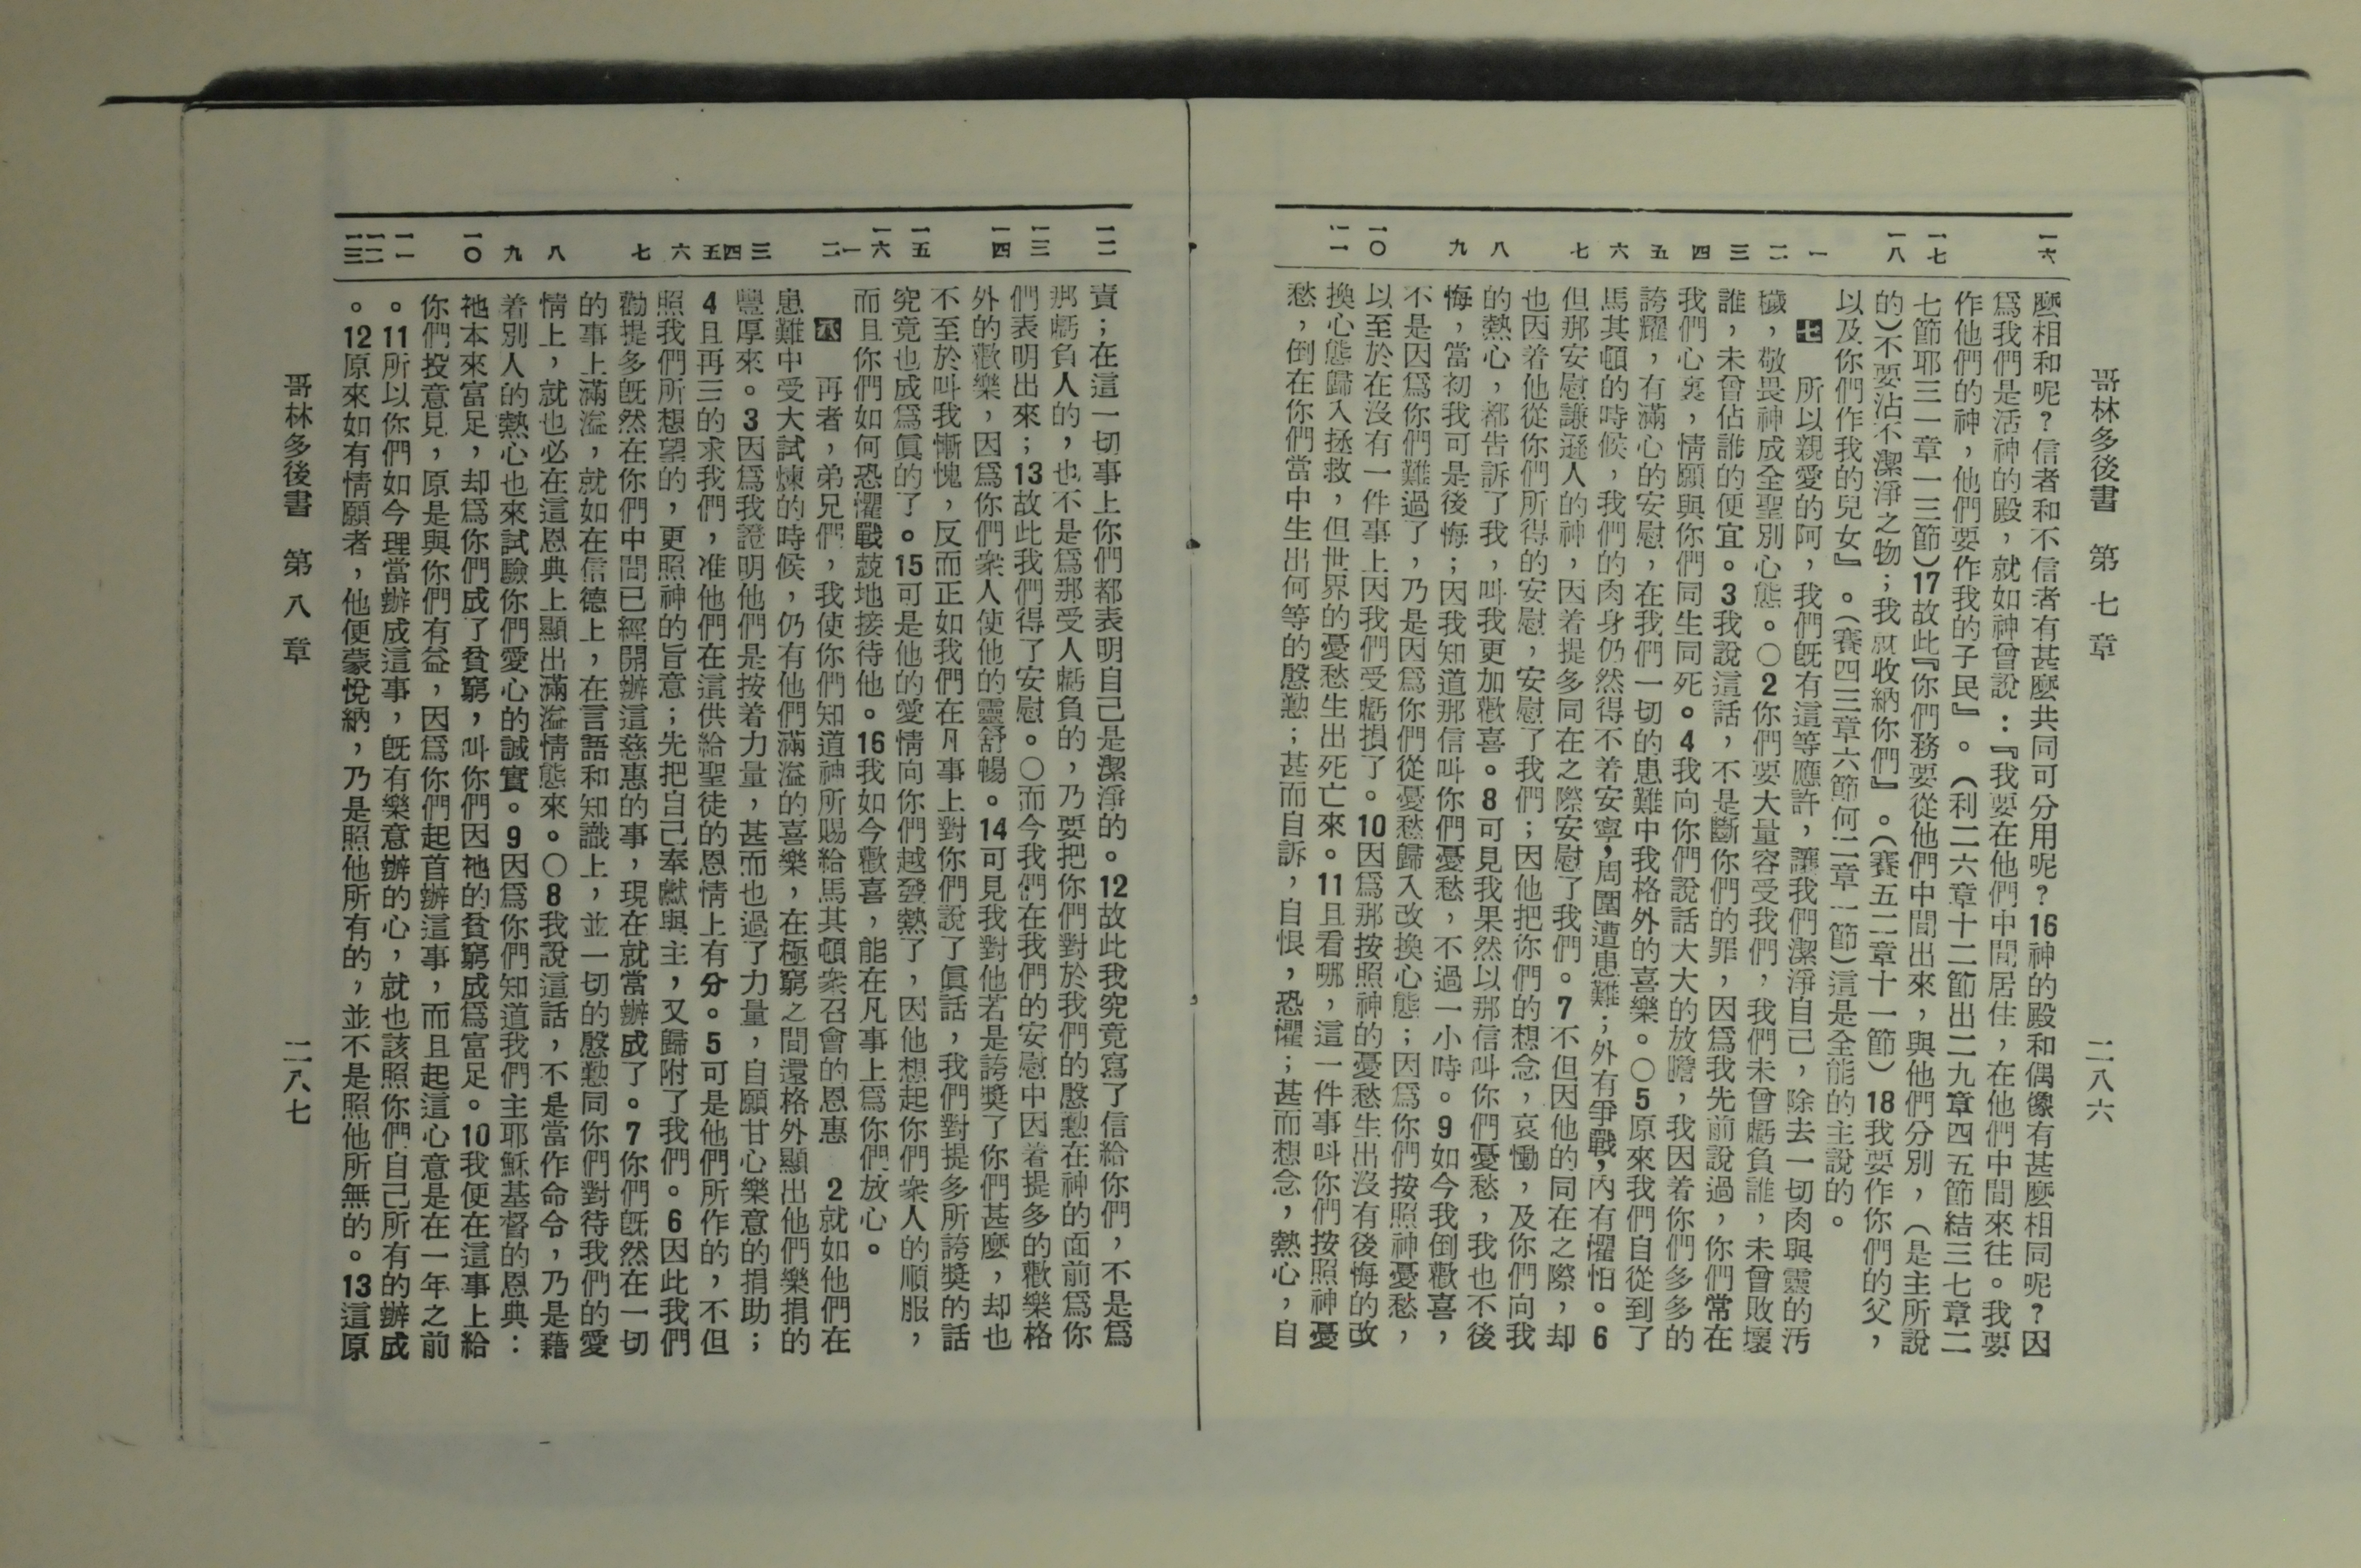 哥林多後書　第七章　二八六
一六　一七　一八　一　二　三　四　五　六　七　八　九　一〇　一一
麼相和呢?信者和不信者有甚麼共同可分用呢?16神的殿和偶像有甚麼相同呢?因
爲我們是活神的殿，就如神曾說：『我要在他們中間居住，在他們中間來往。我要
作他們的神，他們要作我的子民』。(利二六章十二節出二九章四五節結三七章二
七節耶三一章一三節)17故此『你們務要從他們中間出來，與他們分別，(是主所說
的)不要沾不潔淨之物；我就收納你們』。(賽五二章十一節)18我要作你們的父，
以及你們作我的兒女』。(賽四三章六節何二章一節)這是全能的主說的。
七　所以親愛的阿，我們旣有這等應許，讓我們潔淨自己，除去一切肉與靈的汚
穢，敬畏神成全聖別心態。○2你們要大量容受我們，我們未曾虧負誰，未曾敗壞
誰，未曾佔誰的便宜。3我說這話，不是斷你們的罪，因爲我先前說過，你們常在
我們心裏，情願與你們同生同死。4我向你們說話大大的放膽，我因着你們多多的
誇耀，有滿心的安慰，在我們一切的患難中我格外的喜樂。○5原來我們自從到了
馬其頓的時候，我們的肉身仍然得不着安寧，周圍遭患難；外有爭戰，內有懼怕。6
但那安慰謙遜人的神，因着提多同在之際安慰了我們。7不但因他的同在之際，却
也因着他從你們所得的安慰，安慰了我們；因他把你們的想念，哀慟，及你們向我
的熱心，都告訴了我，叫我更加歡喜。8可見我果然以那信叫你們憂愁，我也不後
悔，當初我可是後悔；因我知道那信叫你們憂愁，不過一小時。9如今我倒歡喜，
不是因爲你們難過了，乃是因爲你們從憂愁歸入改換心態；因爲你們按照神憂愁，
以至於在沒有一件事上因我們受虧損了。10因爲那按照神的憂愁生出沒有後悔的改
換心態歸入拯救，但世界的憂愁生出死亡來。11且看哪，這一件事叫你們按照神憂
愁，倒在你們當中生出何等的慇懃；甚而自訴，自恨，恐懼；甚而想念，熱心，自
一二　一三　一四　一五　一六　一　二　三　四　五　六　七　八　九　一〇　一一　一二　一三
責；在這一切事上你們都表明自己是潔淨的。12故此我究竟寫了信給你們，不是爲
那虧負人的，也不是爲那受人虧負的，乃要把你們對於我們的慇懃在神的面前爲你
們表明出來；13故此我們得了安慰。○而今我們在我們的安慰中因着提多的歡樂格
外的歡樂，因爲你們衆人使他的靈舒暢。14可見我對他若是誇獎了你們甚麼，却也
不至於叫我慚愧，反而正如我們在凡事上對你們說了眞話，我們對提多所誇獎的話
究竟也成爲眞的了。15可是他的愛情向你們越發熱了，因他想起你們衆人的順服，
而且你們如何恐懼戰兢地接待他。16我如今歡喜，能在凡事上爲你們放心。
八　再者，弟兄們，我使你們知道神所賜給馬其頓衆召會的恩惠　2就如他們在
患難中受大試煉的時候，仍有他們滿溢的喜樂，在極窮之間還格外顯出他們樂捐的
豐厚來。3因爲我證明他們是按着力量，甚而也過了力量，自願甘心樂意的捐助；
4且再三的求我們，准他們在這供給聖徒的恩情上有分。5可是他們所作的，不但
照我們所想望的，更照神的旨意；先把自己奉獻與主，又歸附了我們。6因此我們
勸提多旣然在你們中間已經開辦這慈惠的事，現在就當辦成了。7你們旣然在一切
的事上滿溢，就如在信德上，在言語和知識上，並一切的慇懃同你們對待我們的愛
情上，就也必在這恩典上顯出滿溢情態來。○8我說這話，不是當作命令，乃是藉
着別人的熱心也來試驗你們愛心的誠實。9因爲你們知道我們主耶穌基督的恩典：
祂本來富足，却爲你們成了貧窮，叫你們因祂的貧窮成爲富足。10我便在這事上給
你們投意見，原是與你們有益，因爲你們起首辦這事，而且起這心意是在一年之前
。11所以你們如今理當辦成這事，旣有樂意辦的心，就也該照你們自己所有的辦成
。12原來如有情願者，他便蒙悅納，乃是照他所有的，並不是照他所無的。13這原
哥林多後書　第八章　二八七